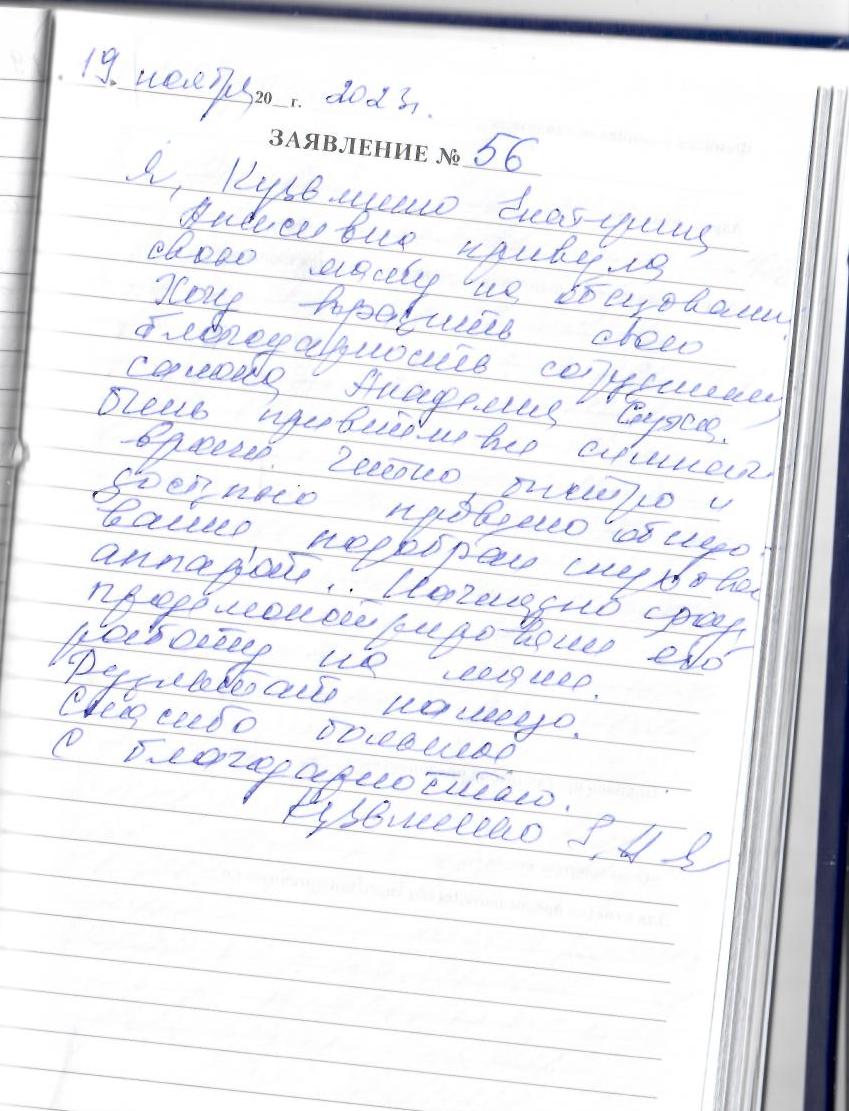 19 ноября 20 г. 2023г.
ЗАЯВЛЕНИЕ № 56
Я, Екатерина
привела
свою маму на обследование.
Хочу выразить свою
благодарность сотрудникам
салона Академия Слуха.
Очень приветливые
врачи. Четко, быстро и
доступно провели обследо-
вание, подобрали слуховой
аппарат. Наглядно сразу
продемонстрировали его
работу на маме.
Результат на лицо.
Спасибо большое
С благодарностью.